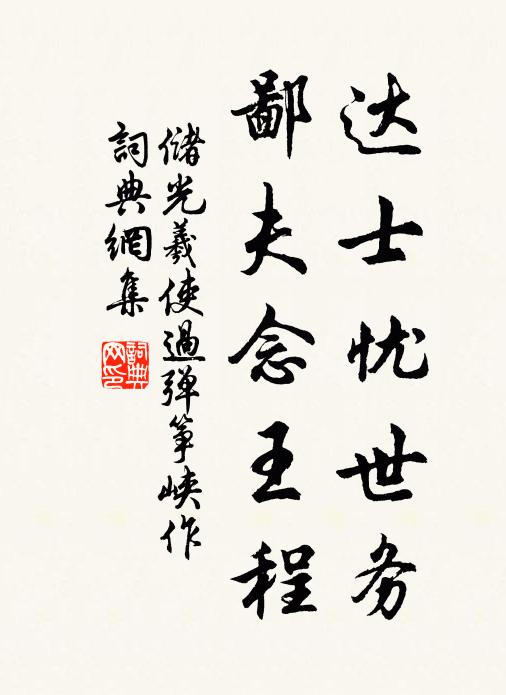 达士忧世务
鄙夫念王程
储光羲使過弹筝峡作
詞典網集
詞典
网印